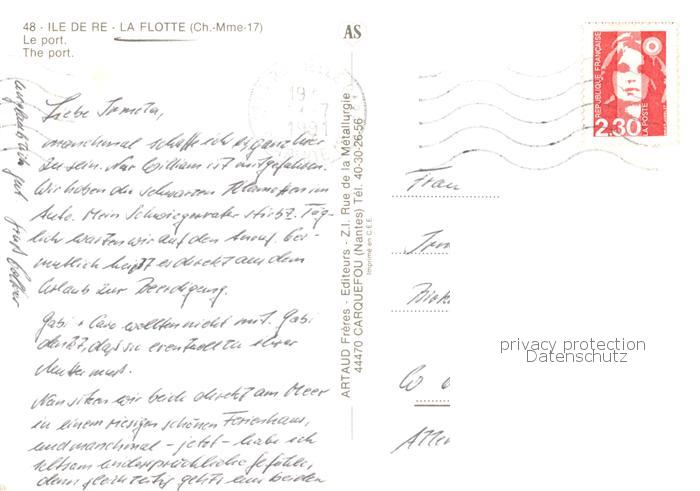 48 - ILE DE RE - LA FLOTTE (Ch.-Mme-17)
Le port.
The port.
AS
Liebe
manchmal schaffe ich es ganz hier
zu sein. Nur William ist mitgefahren.
Wir haben den schwarzen im
Auto. Mein Schwiegervater stirbt. Täg-
lich warten wir auf den Anruf. Ver-
mutlich heißt es direkt aus dem
Urlaub zur Beerdigung.
Gabi + Caro wollten nicht mit. Gabi
denkt, daß sie eventuell zu ihrer
Mutter muß.
Nun sitzen wir beide direkt am Meer
in einem riesigen schönen Ferienhaus,
und manchmal - jetzt - habe ich
seltsam widersprüchliche Gefühle,
denn gleichzeitig geht's uns beiden
unglaublich gut
ARTAUD Frères - Editeurs - Z.I. Rue de la Métallurgie
44470 CARQUEFOU (Nantes) Tél. 40-30-26-56
Imprimé en C.E.E.
1991
REPUBLIQUE FRANÇAISE
2,30
LA POSTE
Frau
privacy protection
Datenschutz